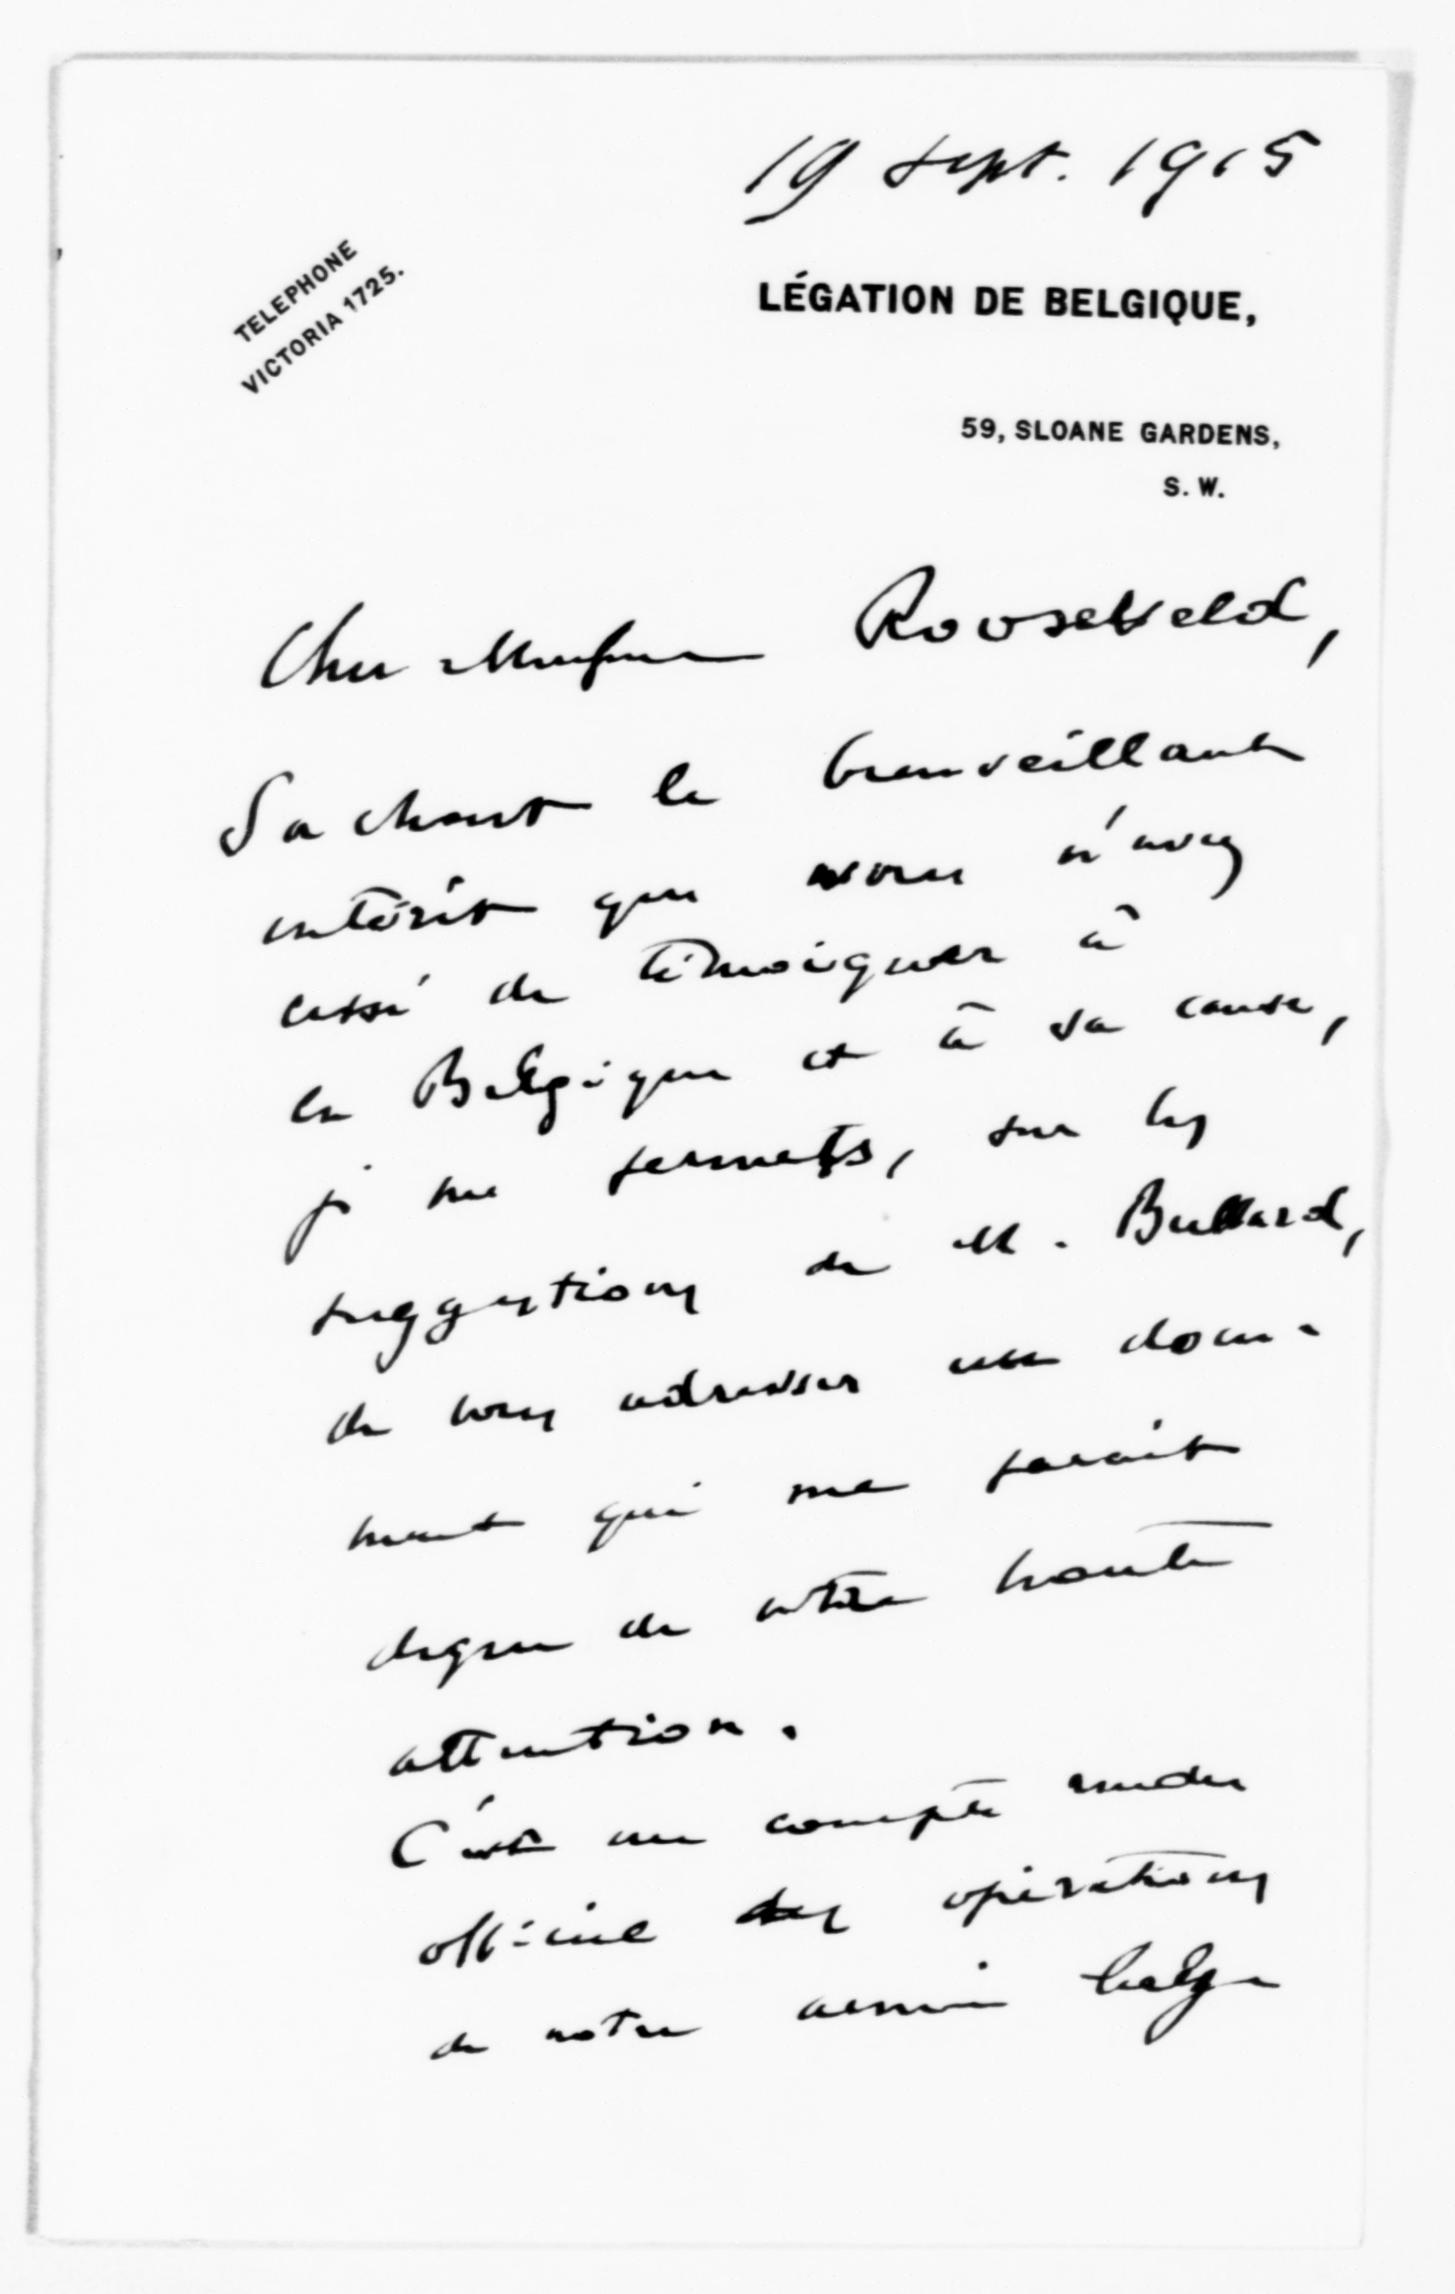 19 Sept. 1915
TELEPHONE
VICTORIA 1725.
LÉGATION DE BELGIQUE,
59, SLOANE GARDENS,
S. W.
Cher Monsieur Rooseveld,
Sachant le bienveillant
intérêt que vous n'avez
cessé de témoigner à
la Belgique et à sa cause,
je me permets, sur les
suggestions de M. Bullard,
de vous adresser un docu-
ment qui me parait
digne de votre haute
attention.
C'est un compte rendu
officiel des opérations
de notre armée belge